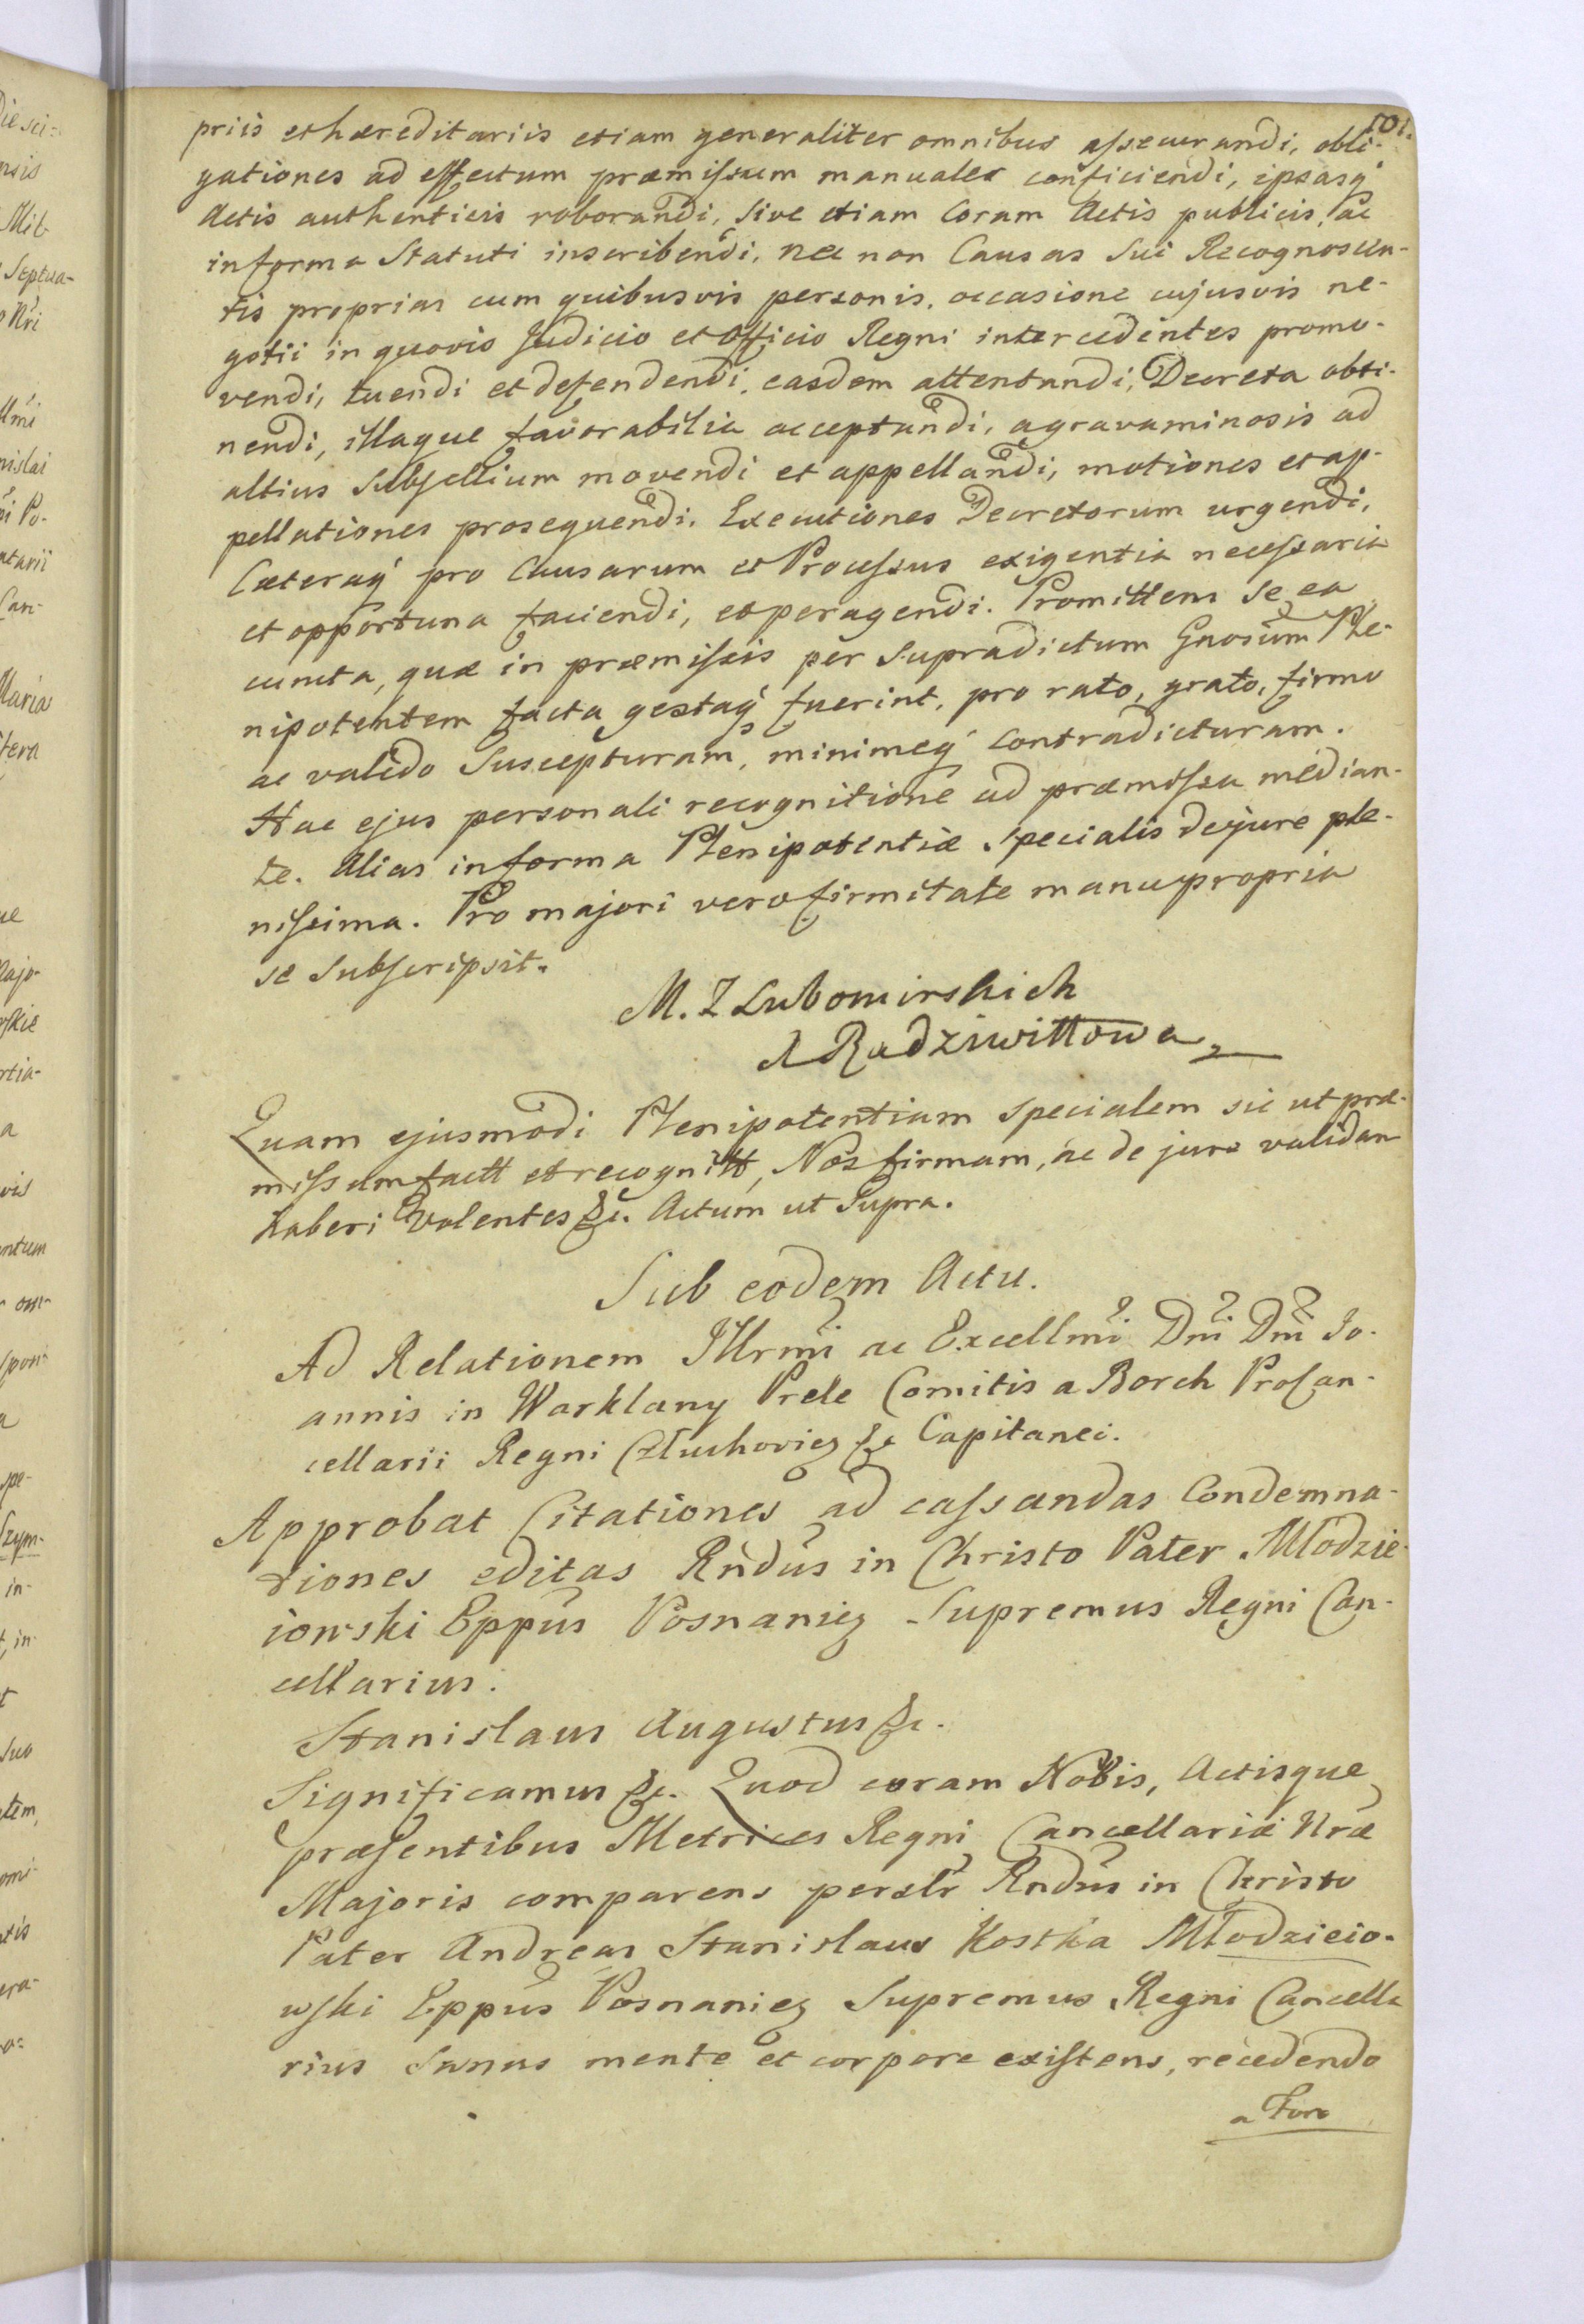 101.
priis et hæreditariis etiam generaliter omnibus assecurandi, obli-
gationes ad effectum præmissum manuales conficiendi, ipsasq́
Actis authenticis roborandi, sive etiam Coram Actis publicis, ac
in forma Statuti inscribendi, nec non Causas Sui Recognoscen-
tis proprias cum quibusvis personis, occasione cujusvis ne-
gotii in quovis Judicio et Officio Regni intercedentes promo-
vendi, tuendi et defendendi, easdem attentandi, Decreta obti-
nendi, illaque favorabilia acceptandi, agravaminosis ad
altius Subsellium movendi et appellandi, motiones et ap-
pellationes prosequendi. Executiones Decretorum urgendi,
Cæteraq́ pro Causarum et Processus exigentia necessaria
et opportuna faciendi, et peragendi. Promittens se ea
cuncta, quæ in præmissis per Supradictum Gnosum Ple-
nipotentem facta gestaq́ fuerint, pro rato, grato, firmo
ac valido Suscepturam, minimeq́ contradicturam.
Hac ejus personali recognitione ad præmissa median-
te. Alias in forma Plenipotentiæ Specialis de jure ple-
nissima. Pro majori vero firmitate manu propria
se Subscripsit.
M. Z Lubomirskich
Radziwiłłowa
Quam ejusmodi Plenipotentiam specialem sic ut præ-
missum facit et recognitt, Nos firmam, ac de jure validam
haberi Volentes &c. Actum ut Supra.
Sub eodem Actu.
Ad Relationem Illrmi ac Excellmi Dni Dni Jo-
annis in Warklany Prele Comitis a Borch ProCan-
cellarii Regni Człuchoviez &c Capitanei.
Approbat Citationes ad cassandas Condemna-
tiones editas Rndus in Christo Pater Młodzie-
iowski Eppus Posnaniez Supremus Regni Can-
cellarius.
Stanislaus Augustus &c.
Significamus &c. Quod coram Nobis, Actisque
præsentibus Metrices Regni Cancellariæ Nræ
Majoris comparens persltr Rndus in Christo
Pater Andreas Stanislaus Kostka Młodzieio-
wski Eppus Posnaniez Supremus Regni Cancella
rius Sanus mente et corpore existens, recedendo
a Foro